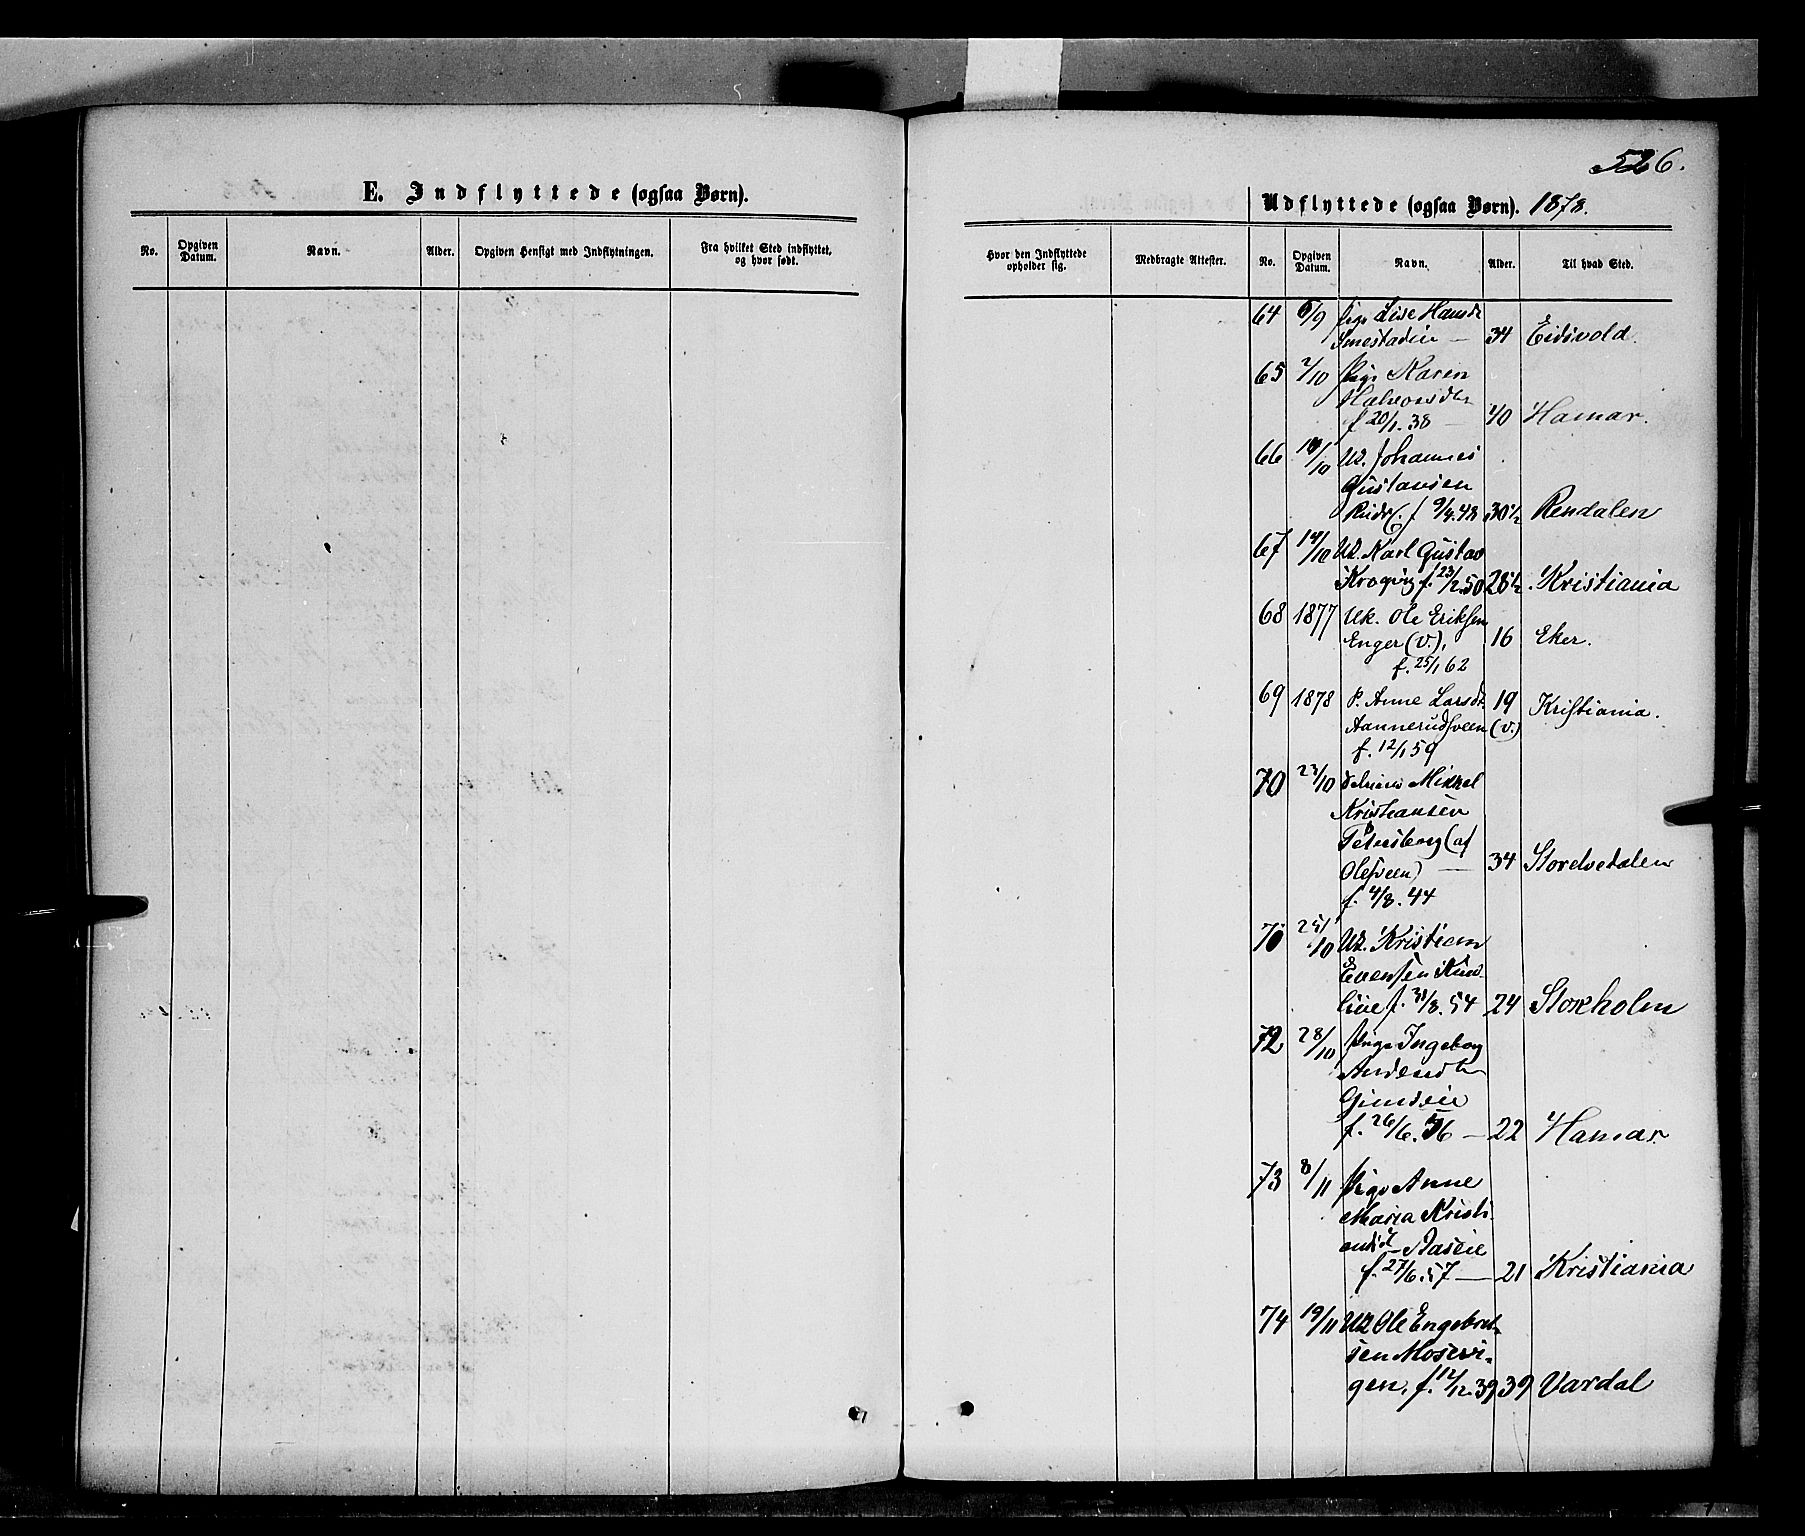 526.
E. Indflyttede (ogsaa Børn).
No.
Opgiven Datum.
Navn.
Alder.
Opgiven Hensigt med Indflytningen.
Fra hvilket Sted indflyttet, og hvor født.
Udflyttede (ogsaa Børn). 1878.
Hvor den Indflyttede opholder sig.
Medbragte Attester.
No.
Opgiven Datum.
Navn.
Alder.
Til hvad Sted.
64 6/9 Pige Lise Hansdr
Smestadeie — 34 Eidsvold.
65 2/10 Pige Karen
Halvorsdtr
f 20/1.38 — 40 Hamar.
66 10/10 Uk. Johannes
Gustavsen
f 9/4.48 30 1/2 Rendalen
67 14/10 Uk. Karl Gustav
f. 23/2.50 28 1/2 Kristiania
68 1877 Uk. Ole Eriksen
Enger (v.), 16 Eker.
f. 25/1 62
69 1878 P. Anne Larsdt. 19 Kristiania.
Aannerudsveen (v.)
f. 12/1 59
70 23/10 Mikkel
Kristiansen
Petersborg (af
Olesveen) — 34 Storelvedalen
f. 4/8.44
70 25/10 Uk. Kristian
Evensen
f. 31/8.54 24 Stokholm
72 28/10 Pige Ingeborg
Andersdtr
f. 26/6.56 — 22 Hamar
73 8/11 Pige Anne
Maria Kristi-
ansdt Aaseie
f. 27/6.57 — 21 Kristiania
74 19/11 Uk Ole Engebret-
sen Mosevi-
gen, f. 12/12.39 39 Vardal